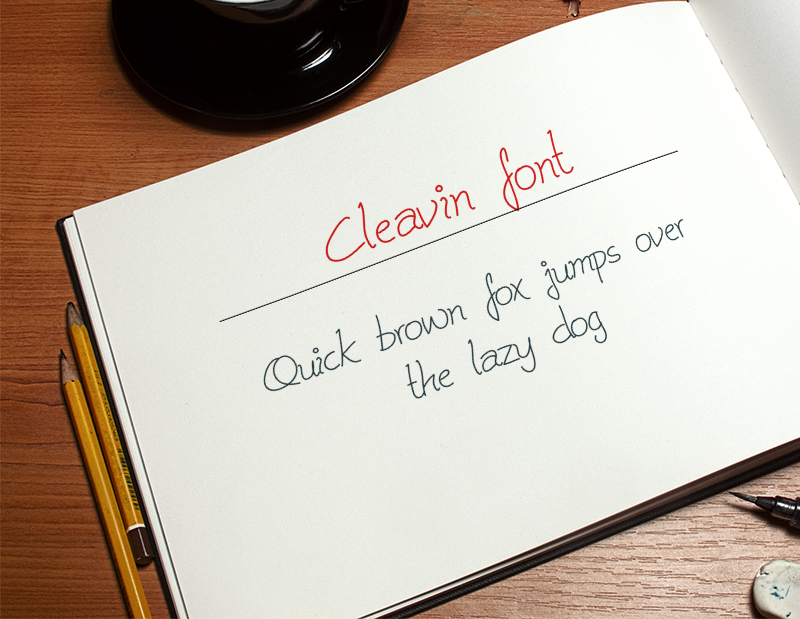 Cleavin font
Quick brown fox jumps over
the lazy dog